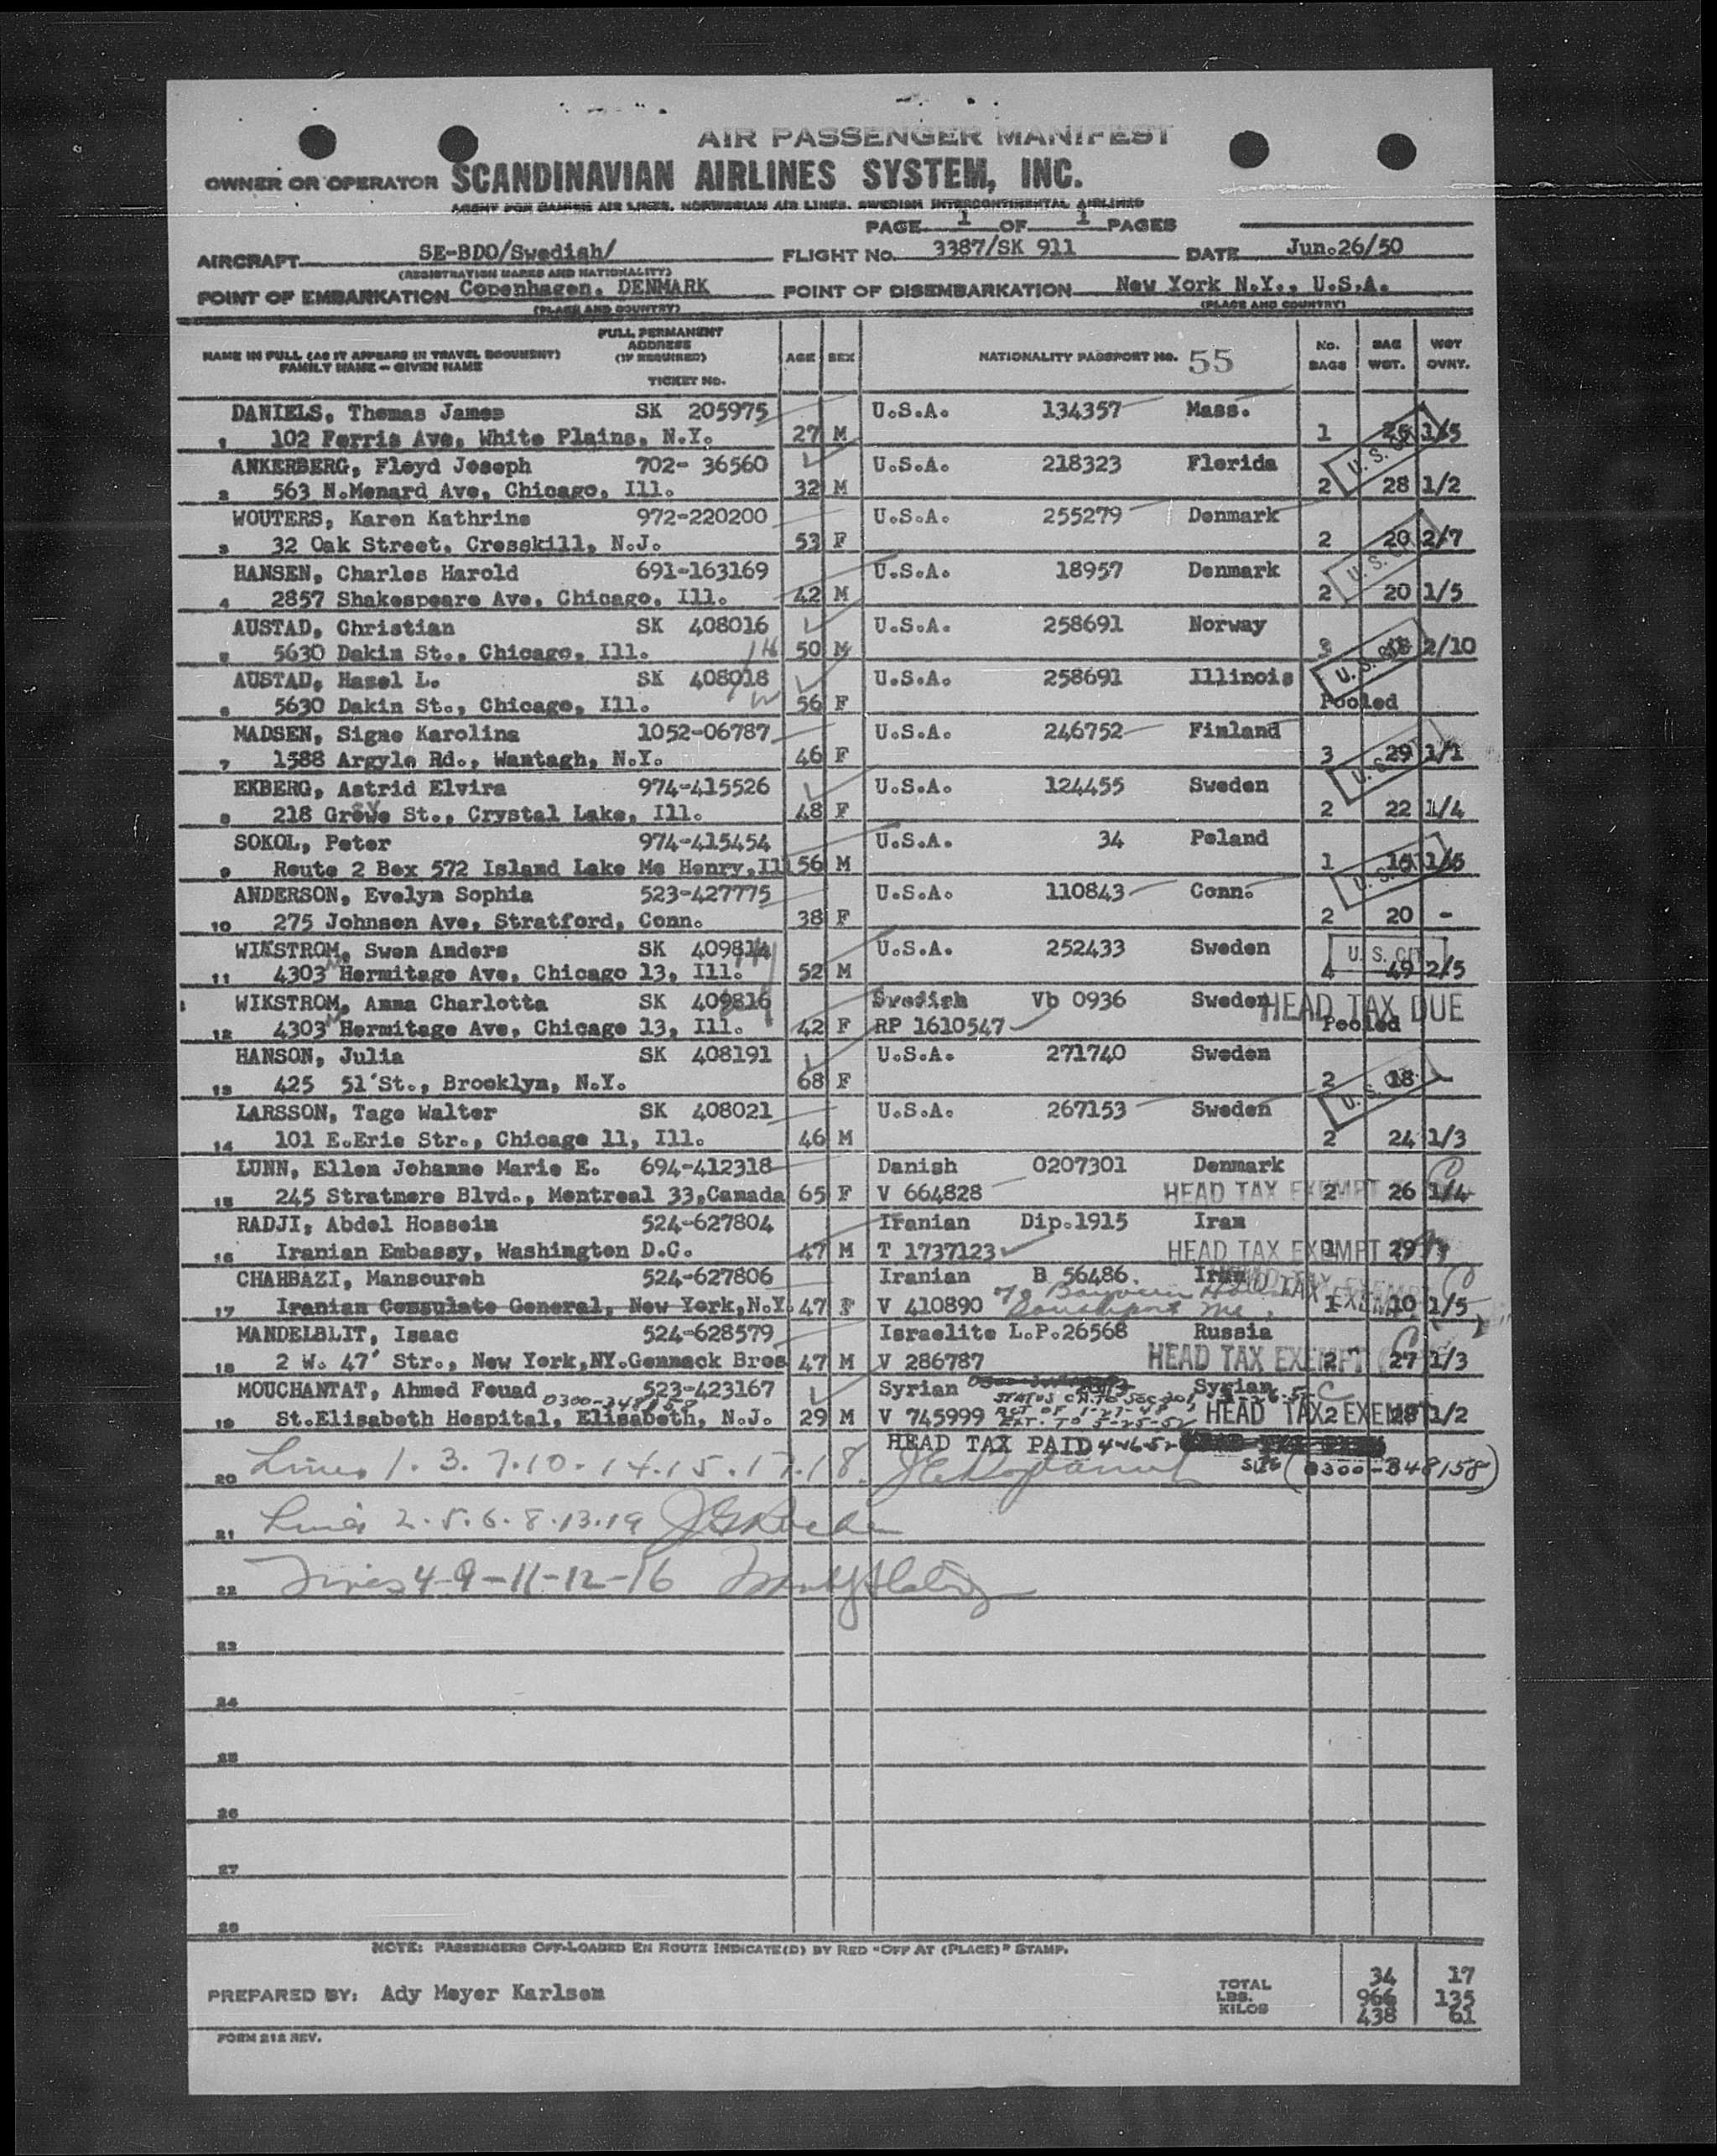 AIR PASSENGER MANIFEST
OWNER OR OPERATOR SCANDINAVIAN AIRLINES SYSTEM, INC.
AGENT FOR DANISH AIR LINES, NORWEGIAN AIR LINES, SWEDISH INTERCONTINENTAL AIRLINES
PAGE 1 OF 1 PAGES
AIRCRAFT SE-BDO/Swedish/ FLIGHT No. 3387/SK 911 DATE Jun.26/50
(REGISTRATION MARKS AND NATIONALITY)
POINT OF EMBARKATION Copenhagen. DENMARK POINT OF DISEMBARKATION New York N.Y., U.S.A.
(PLACE AND COUNTRY) (PLACE AND COUNTRY)
NAME IN FULL (AS IT APPEARS IN TRAVEL DOCUMENT) FAMILY NAME - GIVEN NAME FULL PERMANENT ADDRESS (IF REQUIRED) TICKET No. AGE SEX NATIONALITY PASSPORT No. 55 No. BAGS BAG WGT. WGT OVNT.
DANIELS, Thomas James SK 205975 U.S.A. 134357 Mass.
1 102 Ferris Ave, White Plains, N.Y. 27 M 1 25 1/5
ANKERBERG, Floyd Joseph 702- 36560 U.S.A. 218323 Florida U.S. CIT
2 563 N.Menard Ave, Chicago, Ill. 32 M 2 28 1/2
WOUTERS, Karen Kathrine 972-220200 U.S.A. 255279 Denmark
3 32 Oak Street, Cresskill, N.J. 53 F 2 20 2/7
HANSEN, Charles Harold 691-163169 U.S.A. 18957 Denmark U.S. CIT
4 2857 Shakespeare Ave, Chicago, Ill. 42 M 2 20 1/5
AUSTAD, Christian SK 408016 U.S.A. 258691 Norway
5 5630 Dakin St., Chicago, Ill. 50 M 3 2/10
AUSTAD, Hasel L. SK 408018 U.S.A. 258691 Illinois U.S. CIT
6 5630 Dakin St., Chicago, Ill. 56 F Pooled
MADSEN, Signe Karolina 1052-06787 U.S.A. 246752 Finland
7 1588 Argyle Rd., Wantagh, N.Y. 46 F 3 29 1/1
EKBERG, Astrid Elvira 974-415526 U.S.A. 124455 Sweden U.S. CIT
8 218 St., Crystal Lake, Ill. 48 F 2 22 1/4
SOKOL, Peter 974-415454 U.S.A. 34 Poland
9 Route 2 Box 572 Island Lake Mc Henry,Ill 56 M 1 15 1/5
ANDERSON, Evelyn Sophia 523-427775 U.S.A. 110843 Conn. U.S. CIT
10 275 Johnson Ave, Stratford, Conn. 38 F 2 20 -
WIKSTROM, Swen Anders SK 409814 U.S.A. 252433 Sweden U.S. CIT
11 4303 N Hermitage Ave, Chicago 13, Ill. 52 M 4 49 2/5
WIKSTROM, Anna Charlotta SK 409816 Swedish Vb 0936 Sweden HEAD TAX DUE
12 4303 N Hermitage Ave, Chicago 13, Ill. 42 F RP 1610547 Pooled
HANSON, Julia SK 408191 U.S.A. 271740 Sweden
13 425 51'St., Brooklyn, N.Y. 68 F 2 18 -
LARSSON, Tage Walter SK 408021 U.S.A. 267153 Sweden U.S. CIT
14 101 E.Erie Str., Chicago 11, Ill. 46 M 2 24 1/3
LUNN, Ellen Johanne Marie E. 694-412318 Danish 0207301 Denmark
15 245 Stratmore Blvd., Montreal 33,Canada 65 F V 664828 HEAD TAX EXEMPT 2 26 1/4
RADJI, Abdol Hossein 524-627804 Iranian Dip.1915 Iran
16 Iranian Embassy, Washington D.C. 47 M T 1737123 HEAD TAX EXEMPT 1 29
CHAHBAZI, Mansoureh 524-627806 Iranian B 56486. Iran HEAD TAX EXEMPT
17 Iranian Consulate General, New York,N.Y. 47 F V 410890 1 10 1/5
MANDELBLIT, Isaac 524-628579 Israelite L.P.26568 Russia
18 2 W. 47' Str., New York,NY.Genmack Bros 47 M V 286787 HEAD TAX EXEMPT 2 27 1/3
MOUCHANTAT, Ahmed Fouad 523-423167 Syrian Syrian
0300-348158 STATUS
19 St.Elisabeth Hospital, Elisabeth, N.J. 29 M V 745999 ACT OF 1-27-48 EXT. TO 5-25-52 HEAD TAX EXEMPT 2 28 1/2
HEAD TAX PAID 4-16-52
20 Lines 1. 3. 7. 10. 14. 15. 17. 18. (0300-348158)
21 Lines 2. 5. 6. 8. 13. 19
22 Lines 4-9-11-12-16
23
24
25
26
27
28
NOTE: PASSENGERS OFF-LOADED EN ROUTE INDICATE(D) BY RED "OFF AT (PLACE)" STAMP.
PREPARED BY: Ady Meyer Karlsen
TOTAL 34 17
LBS. 966 135
KILOS 438 61
FORM 212 REV.